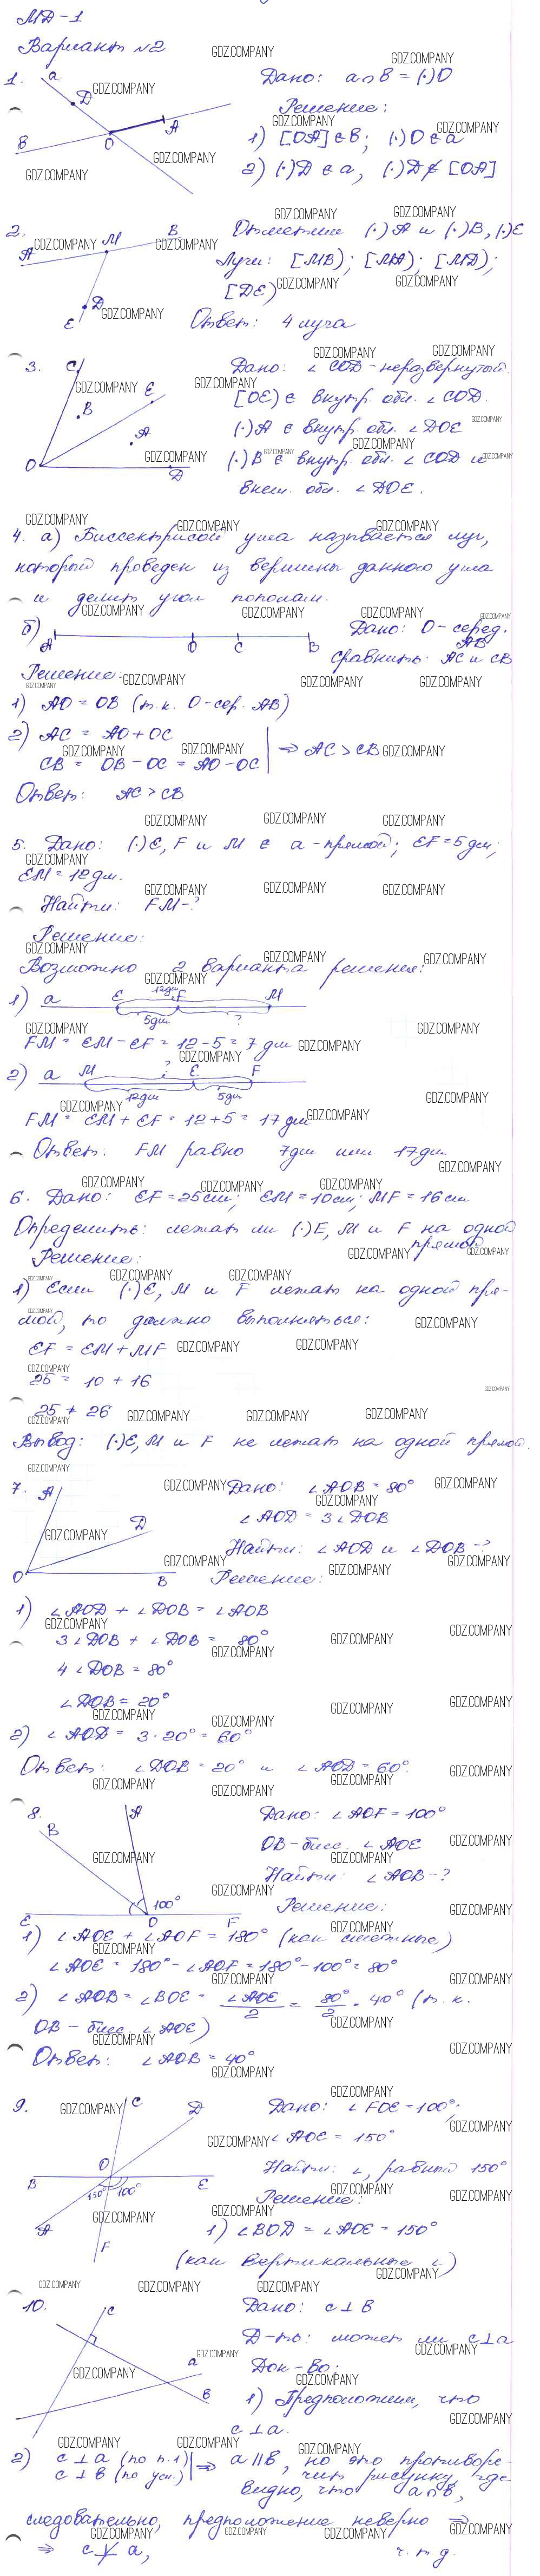 МД-1
Вариант №2
1. a
D
A
B
O
Дано: a∩B = (·)O
Решение:
1) [OA] ∈ B; (·)O ∈ a
2) (·)D ∈ a, (·)D ∉ [OA]
2. A M B
D
E
Отметим (·)A и (·)B, (·)E
Лучи: [MB); [MA); [MD);
[DE)
Ответ: 4 луча
3. C
E
B
A
O
D
Дано: ∠COD - неразвернутый
[OE) ∈ внутр. обл. ∠COD.
(·)A ∈ внутр. обл. ∠DOE
(·)B ∈ внутр. обл. ∠COD и
внеш. обл. ∠DOE.
4. а) Биссектрисой угла называется луч,
который проведен из вершины данного угла
и делит угол пополам.
б) A O C B
Дано: O - серед.
AB
Сравнить: AC и CB
Решение:
1) AO = OB (т.к. O - сер. AB)
2) AC = AO + OC
CB = OB - OC = AO - OC
⇒ AC > CB
Ответ: AC > CB
5. Дано: (·)E, F и M ∈ a - прямой; EF = 5 дм;
EM = 12 дм.
Найти: FM - ?
Решение:
Возможно 2 варианта решения:
1) a E 12дм F M
5дм ?
FM = EM - EF = 12 - 5 = 7 дм
2) a M ? E F
12дм 5дм
FM = EM + EF = 12 + 5 = 17 дм
Ответ: FM равно 7дм или 17дм
6. Дано: EF = 25см; EM = 10см; MF = 16см
Определить: лежат ли (·)E, M и F на одной
прямой
Решение:
1) Если (·)E, M и F лежат на одной пря-
мой, то должно выполняться:
EF = EM + MF
25 = 10 + 16
25 ≠ 26
Вывод: (·)E, M и F не лежат на одной прямой.
7. A
D
O
B
Дано: ∠AOB = 80°
∠AOD = 3∠DOB
Найти: ∠AOD и ∠DOB - ?
Решение:
1) ∠AOD + ∠DOB = ∠AOB
3∠DOB + ∠DOB = 80°
4∠DOB = 80°
∠DOB = 20°
2) ∠AOD = 3·20° = 60°
Ответ: ∠DOB = 20° и ∠AOD = 60°.
8. B A
100°
E O F
Дано: ∠AOF = 100°
OB - бисс. ∠AOE
Найти: ∠AOB - ?
Решение:
1) ∠AOE + ∠AOF = 180° (как смежные)
∠AOE = 180° - ∠AOF = 180° - 100° = 80°
2) ∠AOB = ∠BOE = ∠AOE/2 = 80°/2 = 40° (т.к.
OB - бисс. ∠AOE)
Ответ: ∠AOB = 40°
9. C D
O
B E
150° 100°
A
F
Дано: ∠FOE = 100°;
∠AOE = 150°
Найти: ∠, равный 150°
Решение:
1) ∠BOD = ∠AOE = 150°
(как вертикальные ∠)
10. c
a
B
Дано: c ⊥ B
Д-ть: может ли c ⊥ a
Док-во:
1) Предположим, что
c ⊥ a.
2) c ⊥ a (по п.1)
c ⊥ B (по усл.)
⇒ a ∥ B, но это противоре-
чит рисунку, где
видно, что a∩B,
следовательно, предположение неверно ⇒
⇒ c ⊥̸ a, ч.т.д.
GDZ.COMPANY